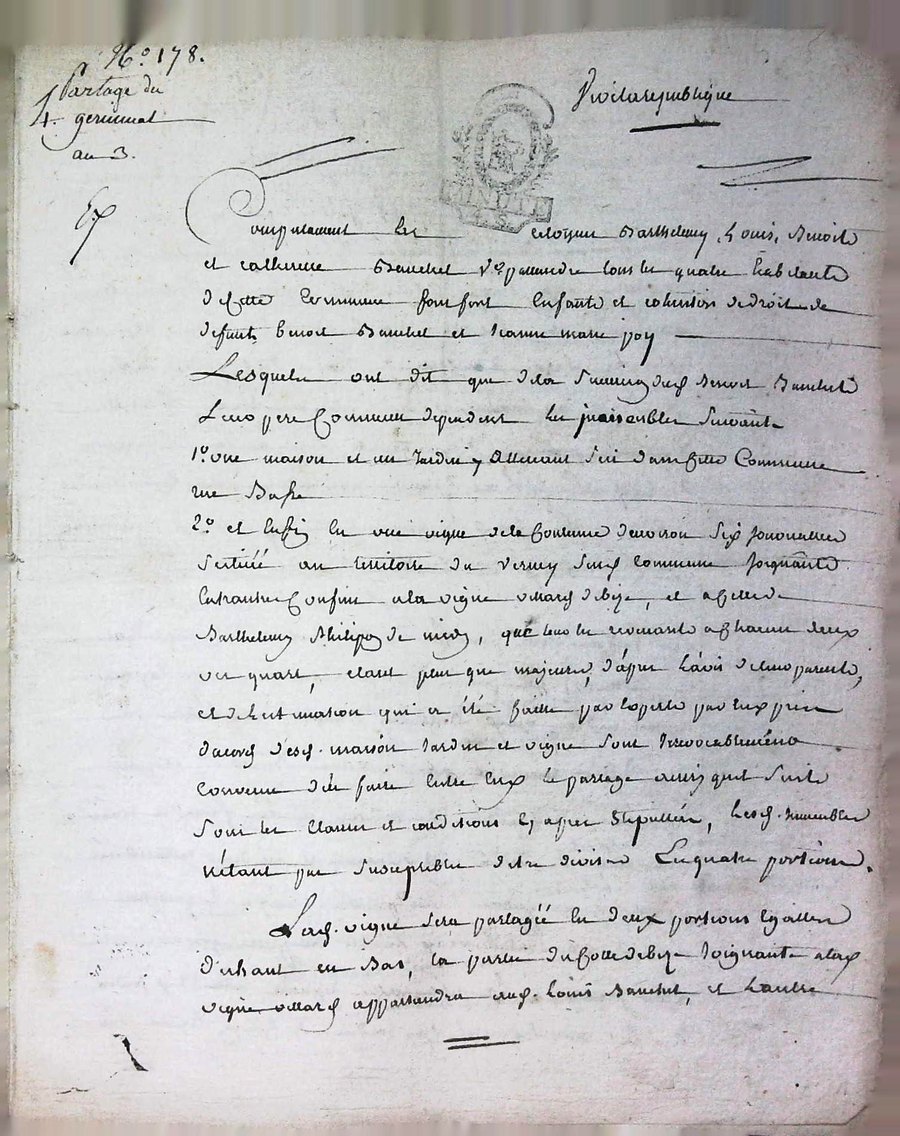 N.o 178.
Partage du
4 germinal
an 3.
Vive la republique
MINUTE
Ex
Comparaissent les citoyens Barthelemy, Louis, Benoit
et catherine Bauchet v.e tous les quatre habitants
de cette Commune enfants et de droit de
defunts benoit Bauchet et jeanne marie joly
Lesquels ont dit que de la dud. Benoit Bauchet
Leur pere Commun dependent les immeubles suivants
1.o une maison et un Jardin y attenant sis dans cette Commune
rue Basse
2.o et enfin en une vigne de la Contenue d'environ six journallées
située au territoire du Vernay susd. Commune joignante
entrautres Confins a la vigne villard de bize, et a celle de
Barthelemy Philipon de midy, que tous les a chacun d'eux
un quart, etant plus que majeurs, d'après l'avis de leurs parents,
et de l'estimation qui a été faitte par experts par eux pris
d'acord desd. maison Jardin et vigne sont irrevocablement
convenus de faire entre eux le partage ainsi quil suit
sous les clauses et conditions cy apres stipulées, Lesd. immeubles
n'étant pas susceptibles d'etre divisés En quatre portions.
Lad. vigne sera partagée en deux portions Egalles
d'enhaut en Bas, la partie du Cotté de bize Joignante a lad.
vigne villard appartiendra aud. Louis Bauchet, et L'autre